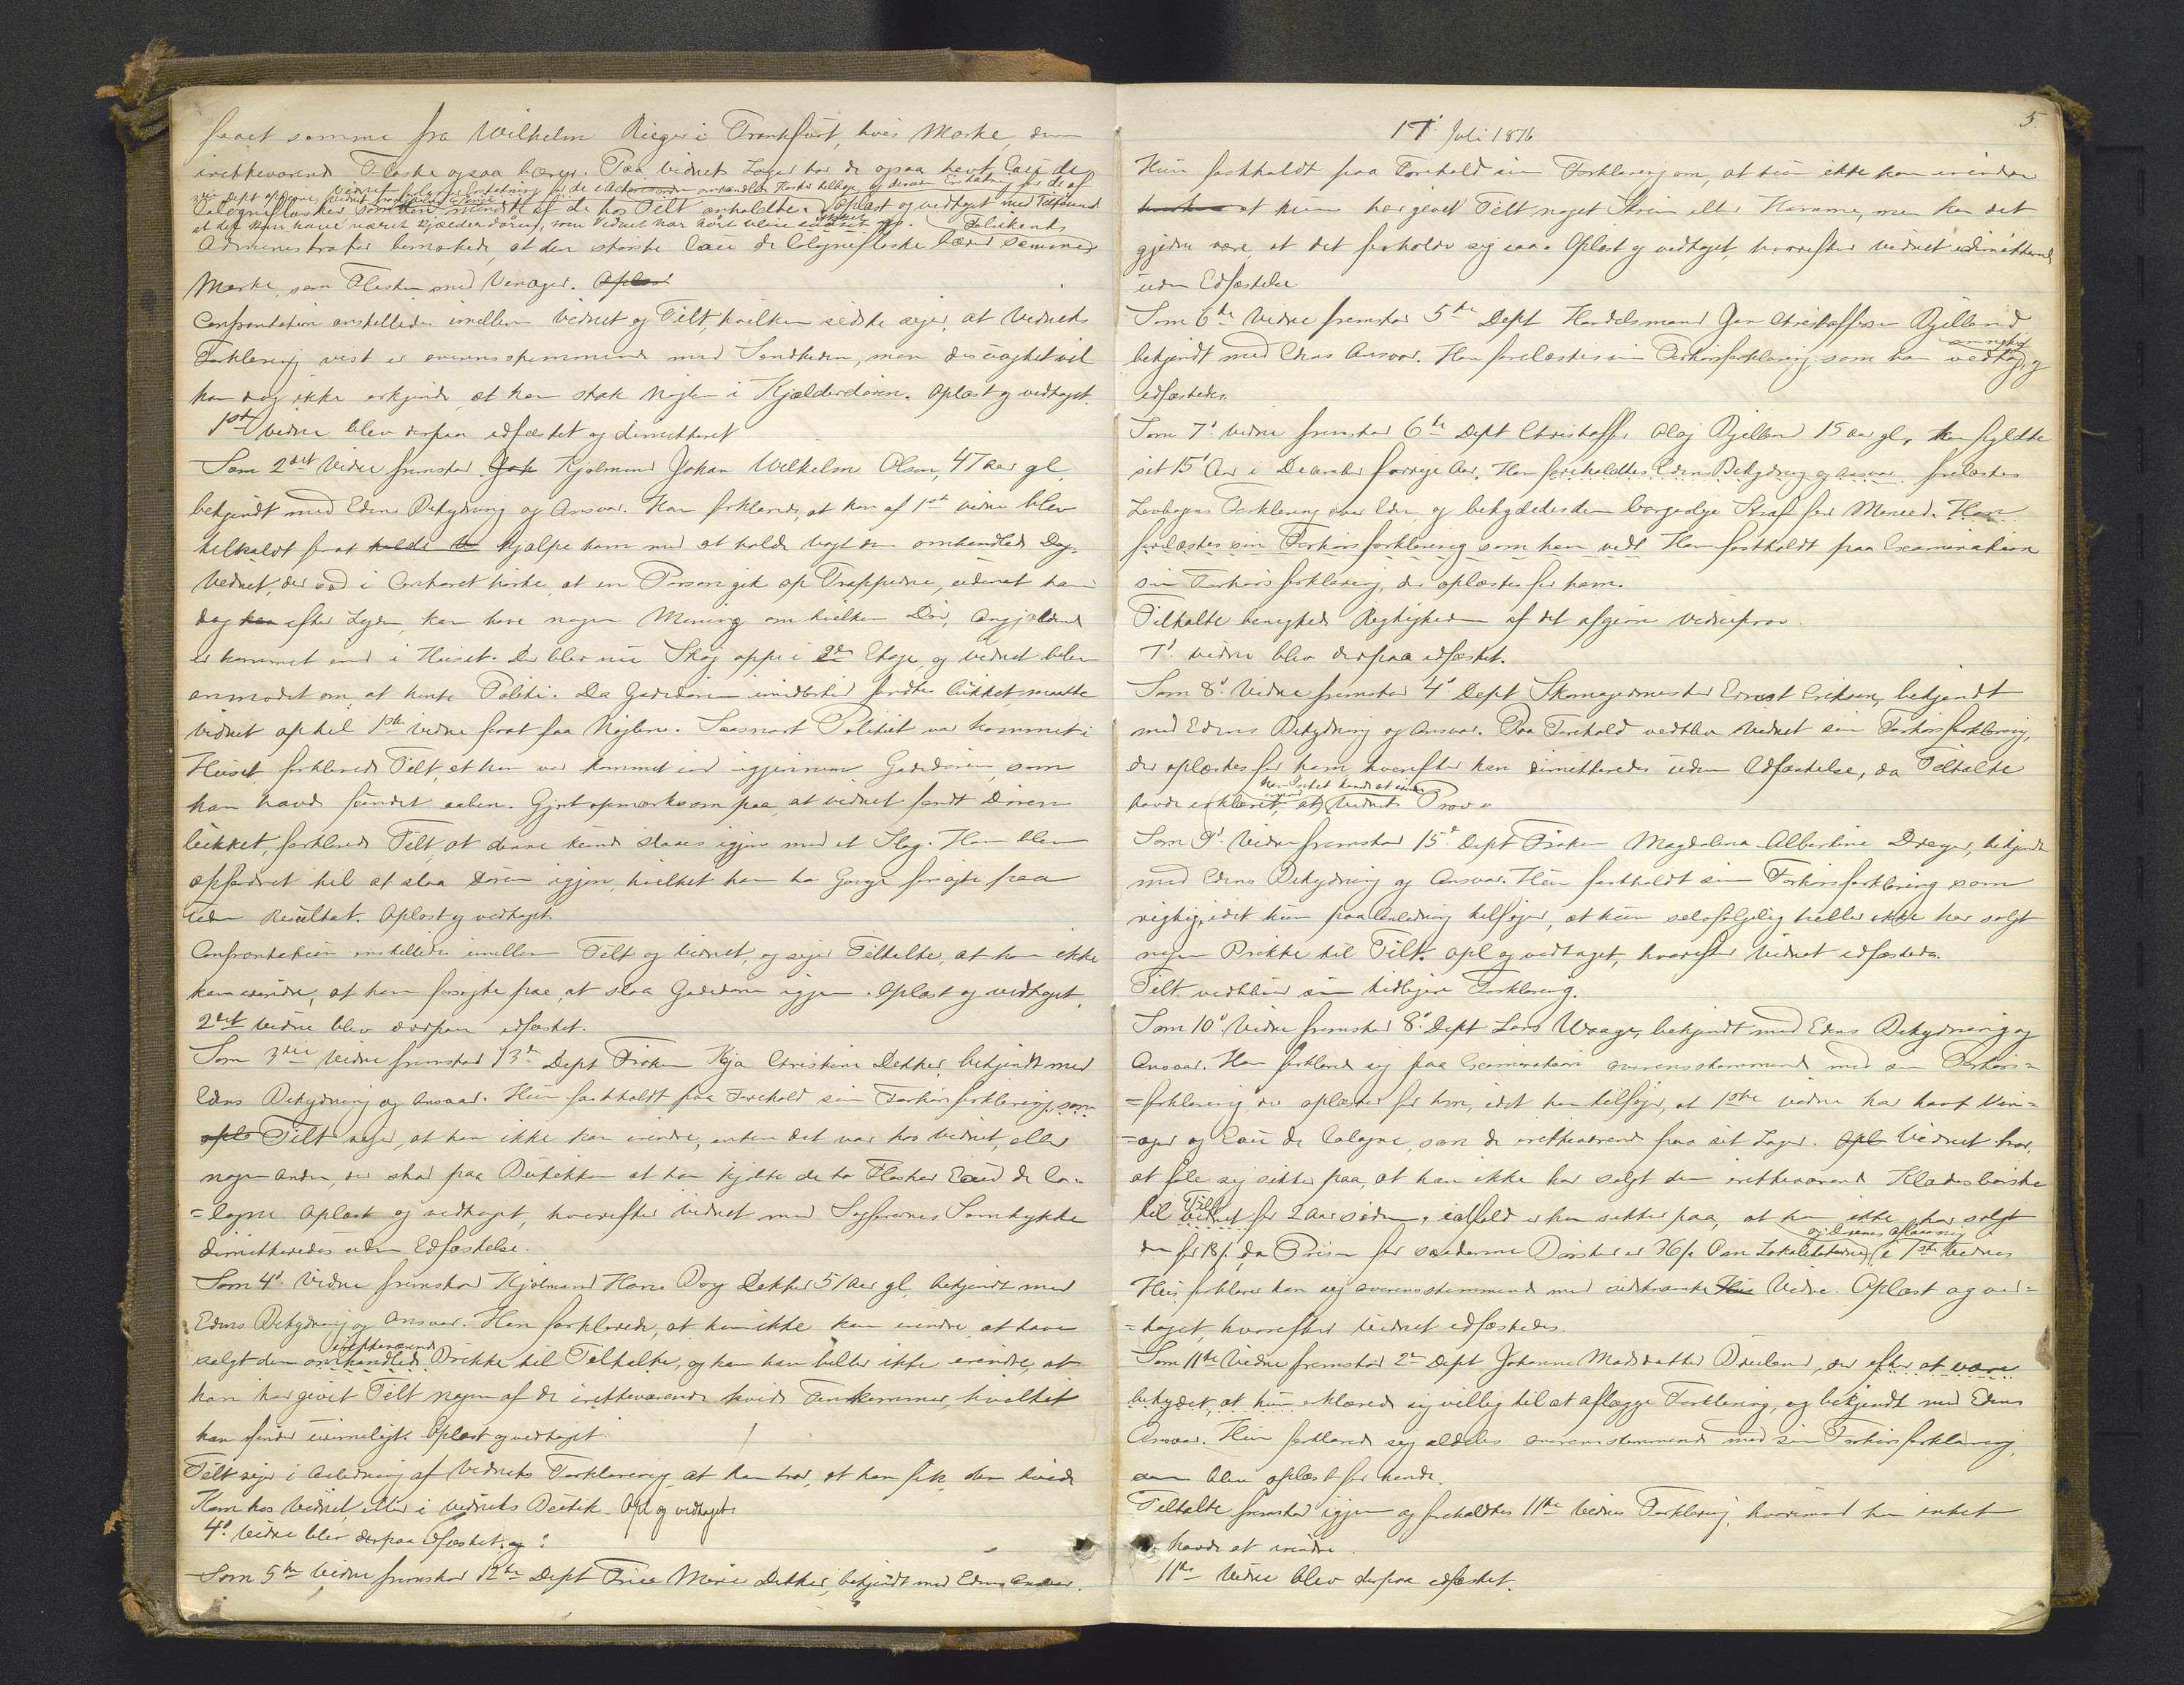 faaet samme fra Wilhelm Rieger i Frankfurt, hvis Mærke den
iretteværende Flaske ogsaa bærer. Paa Vidnets Lager har de ogsaa havt Eau de
Cologneflasker som den mindste af de hos Tilt anholdte. Oplæst og vedtaget med Tilføiende
at det kan have været Kjælderdøren, som Vidnet har hørt blive lukket op.
Administrator bemærkede, at den største Eau de Cologneflaske bærer samme
Mærke, som Flasken med Vinager. Oplæst
Confrontation anstilledes imellem Vidnet og Tilt, hvilken sidste siger, at Vidnets
Forklaring vist er overensstemmende med Sandheden, men desuagtet vil
han dog ikke erkjende, at han stak Nøglen i Kjælderdøren. Oplæst og vedtaget.
1ste Vidne blev derpaa edfæstet og dimitteret
Som 2det Vidne fremstod Joh Kjøbmand Johan Wilhelm Olsen, 47 Aar gl,
bekjendt med Edens Betydning og Ansvar. Han forklarede, at han af 1ste Vidne blev
tilkaldt for at holde V hjælpe ham med at holde Vagt den omhandlede Dag.
Vidnet, der sad i Contoret hørte, at en Person gik op Trapperne, uden at han
dog kan efter Lyden, kan have nogen Mening om hvilken Dør, Angjældende
er kommet ind i Huset. Der blev nu Støj oppe i 2den Etage, og Vidnet blev
anmodet om at hente Politi. Da Gadedøren imidlertid fandtes lukket, maatte
Vidnet op til 1ste Vidne forat faa Nøglen. Saasnart Politiet var kommet i
Huset, forklarede Tilt, at han var kommet ind igjennem Gadedøren, som
han havde fundet aaben. Gjort opmærksom paa, at Vidnet fandt Døren
lukket, forklarede Tilt, at denne kunde slaaes igjen med et Slag. Han blev
opfordret til at slaa Døren igjen, hvilket han to Gange forsøgte paa
uden Resultat. Oplæst og vedtaget.
Confrontation anstilledes imellem Tilt og Vidnet, og siger Tiltalte, at han ikke
kan erindre, at han forsøgte paa, at slaa Gadedøren igjen. Oplæst og vedtaget.
2det Vidne blev derpaa edfæstet.
Som 3die Vidne fremstod 13de Dept Frøken Kja Christine Dekker, bekjendt med
Edens Betydning og Ansvar. Hun fastholdt paa Forehold sin Forhørsforklaring, som
opls Tilt siger, at han ikke kan erindre, enten det var hos Vidnet, eller
nogen anden, der stod paa Butikken at han kjøbte de to Flasker Eau de Co-
=logne. Oplæst og vedtaget, hvorefter Vidnet med Sagførernes Samtykke
dimitteredes uden Edfæstelse.
Som 4de Vidne fremstod Kjøbmand Hans Boy Dekker 51 Aar gl, bekjendt med
Edens Betydning og Ansvar. Han forklarede, at han ikke kan erindre at have
iretteværende
solgt den omhandlede Brikke til Tiltalte, og kan han heller ikke erindre, at
han har givet Tilt nogen af de iretteværende hvide Finkammer, hvilket
han finder urimeligt. Oplæst og vedtaget.
Tilt siger i Anledning af Vidnets Forklaring, at han tror, at han fik den hvide
Kam hos Vidnet, eller i Vidnets Butik. Opl og vedtaget.
4de Vidne blev derpaa Edfæstet. og
Som 5te Vidne fremstod 12te Dept Frue Marie Dekker, bekjendt med Edens Ansvar.
5.
17de Juli 1876
Hun fastholdt paa Forehold sin Forklaring om, at hun ikke kan erindre
at hun har givet Tilt noget Skrin eller Kamme, men kan det
gjerne være, at det forholder sig saa. Oplæst og vedtaget, hvorefter Vidnet dimitteredes
uden Edfæstelse
Som 6te Vidne fremstod 5te Dept Handelsmand Jan Christoffersen Bjelland
bekjendt med Edens Ansvar. Han forelæstes sin Forhørsforklaring, som han vedtog, og
edfæstedes.
Som 7de Vidne fremstod 6te Dept Christoffer Olaj Bjelland 15 Aar gl, han fyldte
sit 15de Aar i December forrige Aar. Han foreholdtes Edens Betydning og Ansvar. forelæstes
Lovbogens Forklaring over Eden og betydedes den borgerlige Straf for Meneed. Han
forelæstes sin Forhørsforklaring som han vedt Han fastholdt paa Examination
sin Forhørsforklaring, der oplæstes for ham.
Tiltalte benegtede Rigtigheden af det afgivne Vidneprov.
7de Vidne blev derpaa edfæstet.
Som 8de Vidne fremstod 4de Dept Skomagermester Ernst Eriksen, bekjendt
med Edens Betydning og Ansvar. Paa Forehold vedblev Vidnet sin Forhørsforklaring,
der oplæstes for ham hvorefter han dimitteredes uden Edfæstelse, da Tiltalte
havde erklæret, at Vidnets Prov
Som 9de Vidne fremstod 15de Dept Frøken Magdalena Albertine Dreyer, bekjendt
med Edens Betydning og Ansvar. Hun fastholdt sin Forhørsforklaring som
rigtig, idet hun paa Anledning tilføjer, at hun selvfølgelig heller ikke har solgt
nogen Brikke til Tilt. Opl og vedtaget, hvorefter Vidnet edfæstedes.
Tilt vedbliver sin tidligere Forklaring.
Som 10de Vidne fremstod 8de Dept Lars Waage, bekjendt med Edens Betydning og
Ansvar. Han forklarede sig paa Examination overensstemmende med sin Forhørs-
=forklaring, der oplæstes for ham, idet han tilføjer, at 1ste Vidne har havt Vin-
=ager og Eau de Cologne, som de iretteværende paa sit Lager. Opl Vidnet tror,
at føle sig sikker paa, at han ikke har solgt den iretteværende Klædesbørste
Tilt
til Vidnet for 2 Aar siden, ialfald er han sikker paa, at han ikke har solgt
den for 18 s, da Prisen for saadanne Børster er 36 s. Om Lokaliteterne i 1ste Vidnes
Hus forklarer han sig overensstemmende med sidstnævnte Hus Vidne. Oplæst og ved-
=taget, hvorefter Vidnet edfæstedes.
Som 11te Vidne fremstod 2den Dept Johanne Madsdatter Brueland, der efter at være
betydet, at hun erklærede sig villig til at aflægge Forklaring, og bekjendt med Edens
Ansvar. Hun forklarede sig aldeles overensstemmende med sin Forhørsforklaring,
som blev oplæst for hende.
Tiltalte fremstod igjen og foreholdtes 11te Vidnes Forklaring, hvorimod han intet
havde at erindre.
11te Vidne blev derpaa edfæstet.